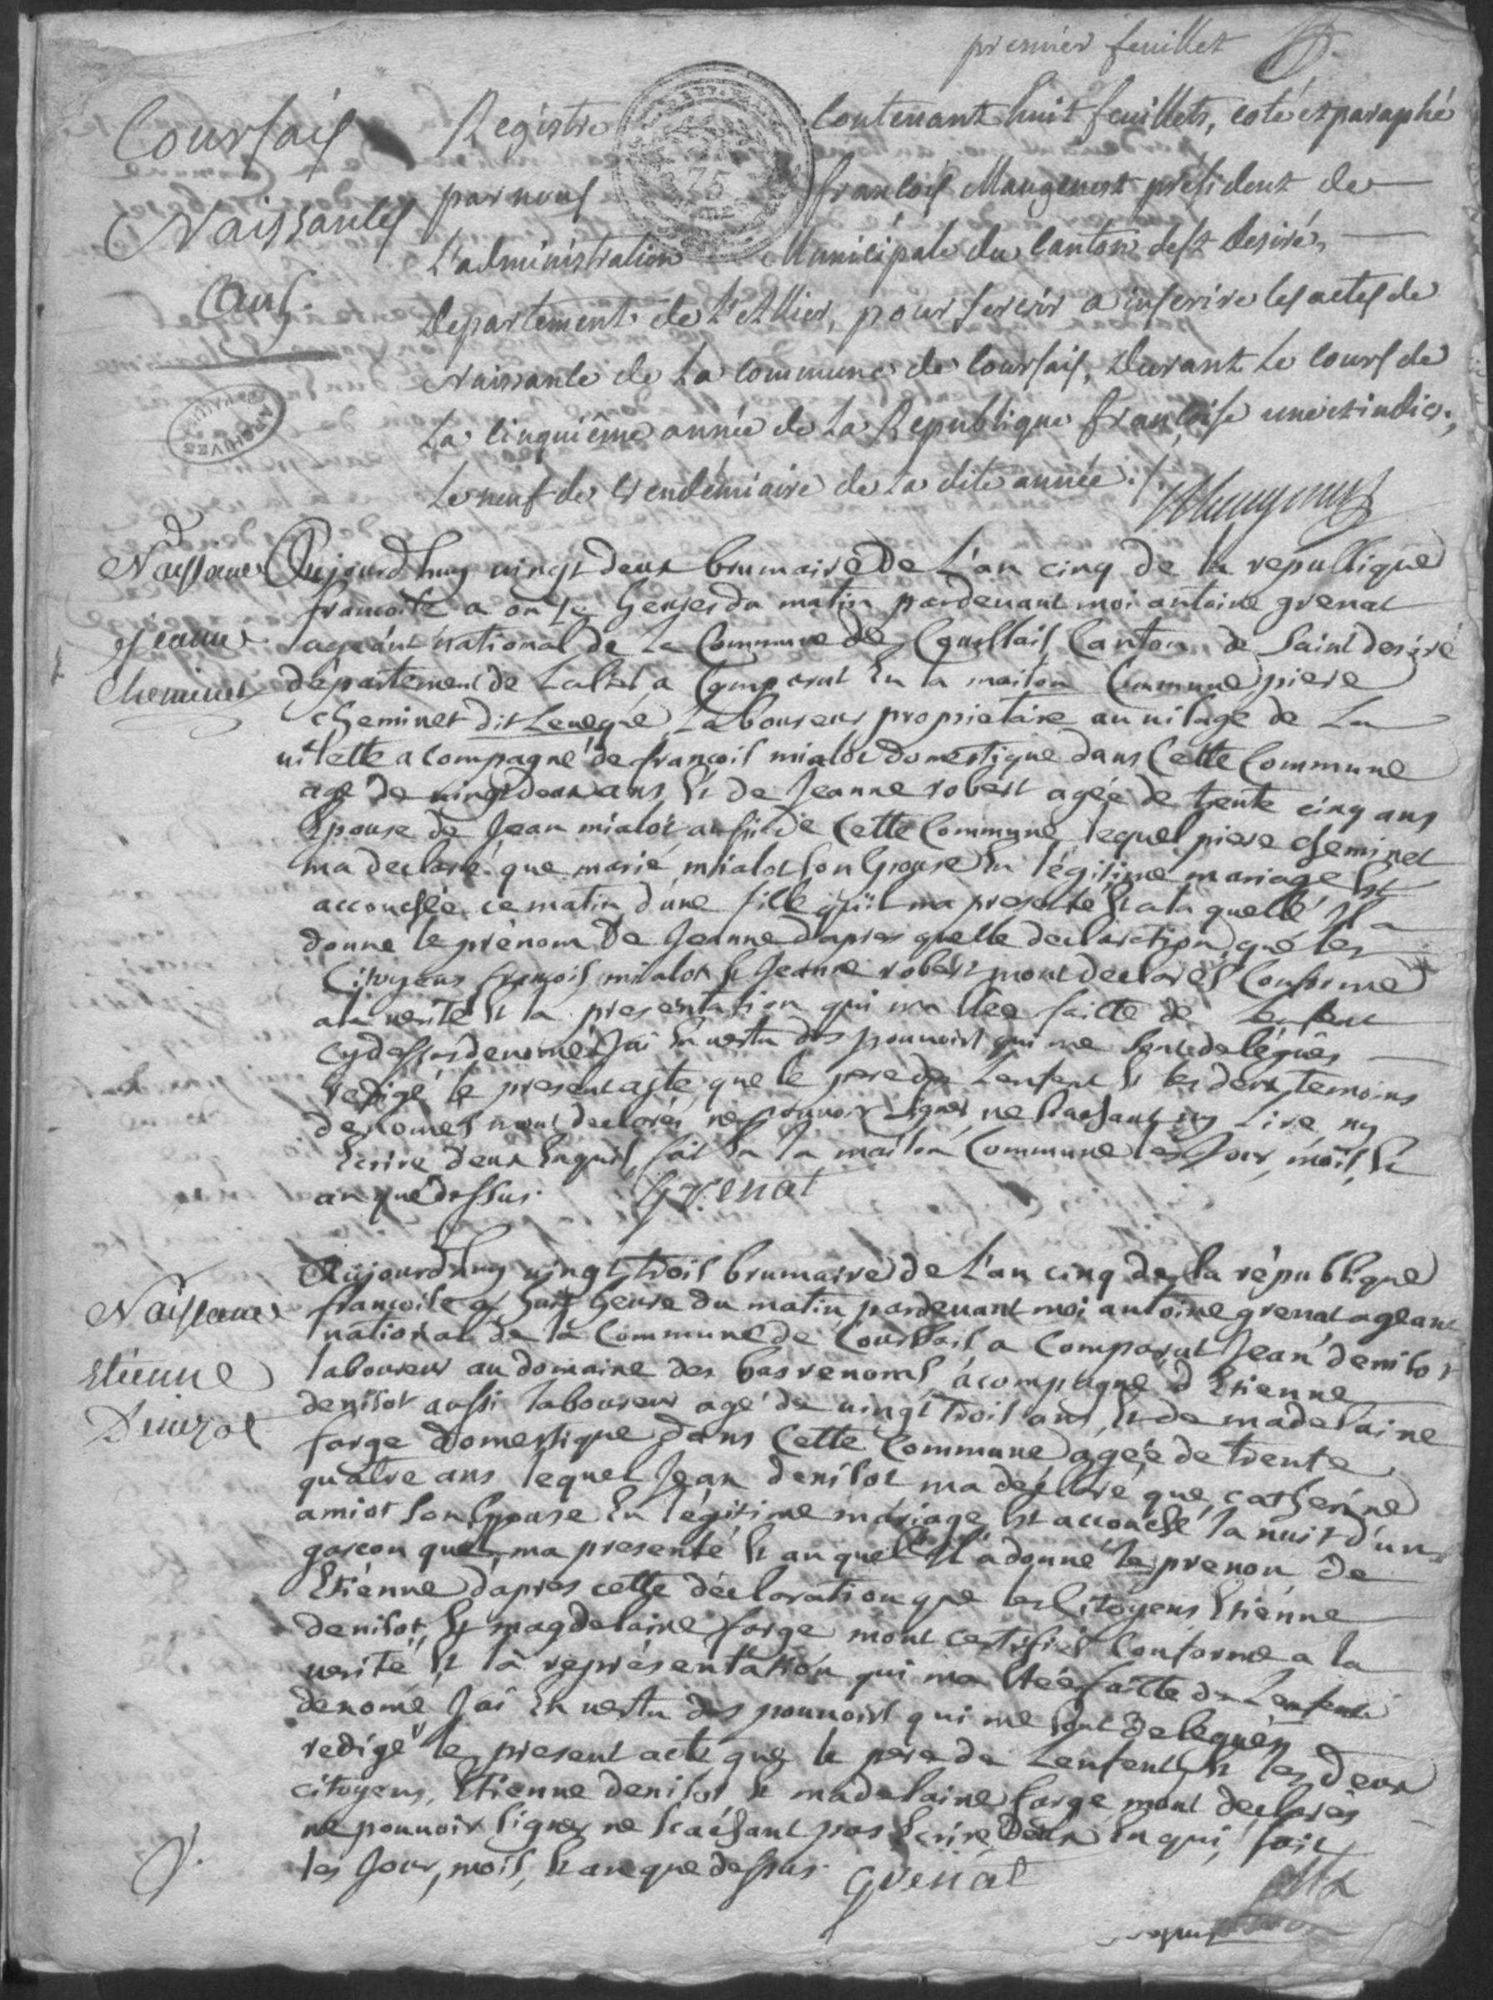 premier feuillet
Coursais
Naissances
Cinq.
Registre contenant huit feuillets, coté et paraphé
par nous francois Maugenest president de
L'administration Municipale du Canton de St desiré,
Departement de L'Allier, pour servir a inscrire les actes de
Naissance de La commune de Coursais, Durant Le cours de
La cinquiême année de La Republique francoise une et indiv.,
Le neuf de Vendémiaire de La dite année ./.
Maugenest
Naissance
Jeanne
Cheminet
Aujourdhuy vingt deux brumaire de L'an cinq de la republique
francoise a onse heures du matin pardevant moi antoine grenat
ageant national de la Commune de Coursais Canton de Saint desiré
département de Lalié a Comparut En la maison Commune, piere
cheminet dit Leveque Laboureur proprietaire au vilage de La
vilette acompagné de françois mialot domestique dans Cette Commune
agé de vingt deux ans Et de Jeanne robert agée de trente cinq ans
Epouse de Jean mialot aussi de Cette Commune, lequel piere cheminet
ma declaré que marie mialot son Epouse En légitime mariage Est
accouchée ce matin d'une fille qu'il ma presenté Et a la quelle Il a
donne le prénom De Jeanne d'apres quelle declaration que les
Citoyens françois mialot Et Jeanne robert mont declarés Conforme
a la verité Et la presentation qui ma Eté faitte de Lenfent
cy dessus denomé Jai En vertu des pouvoirs qui me sont delégués
redigé le present acte que le pere de Lenfent Et les deux temoins
denomés mont declarés ne pouvoir signer ne scachant ny Lire ny
Ecrire deux Enquis, fait En la maison Commune les Jour, mois, Et
an que dessus. Grenat
Naissance
Etienne
Denizot
Aujourdhuy vingt trois brumaire de L'an cinq de la république
françoise a huit heure du matin, pardevant moi antoine grenat ageant
national de la Commune de Coursais a Comparut Jean denisot
laboureur au domaine des bas renoms acompagné d'Etienne
denisot aussi laboureur agé de vingt trois ans, Et de madelaine
farge Domestique dans Cette Commune agée de trente
quatre ans lequel Jean denisot ma déclaré que catherine
amiot son Epouse En légitime mariage Est accouché la nuit d'un
garçon quil ma presenté Et au quel Il a donné le prenon de
Etiénne d'apres cette déclaration que les Citoyens Etiénne
denisot, Et magdelaine farge mont certifiés Conforme a la
verité Et la représentation qui ma Eté faitte de Lenfent
denomé Jai En vertu des pouvoirs qui me sont delegués
redigé le present acte que le pere de Lenfent Et les deux
citoyens, Etienne denisot Et madelaine farge mont declarés
ne pouvoir signer ne scachant pas Ecrire Deux Enqui, fait
les Jour, mois, Et an que dessus. grenat